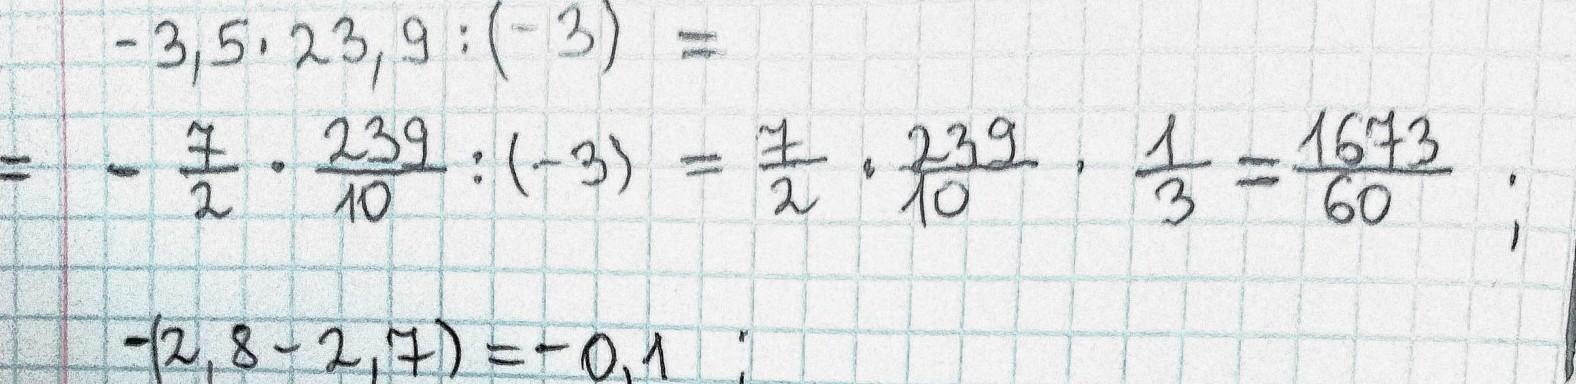 -3,5 · 23,9 : (-3) =
= - 7/2 · 239/10 : (-3) = 7/2 · 239/10 · 1/3 = 1673/60 ;
-(2,8 - 2,7) = -0,1 ;